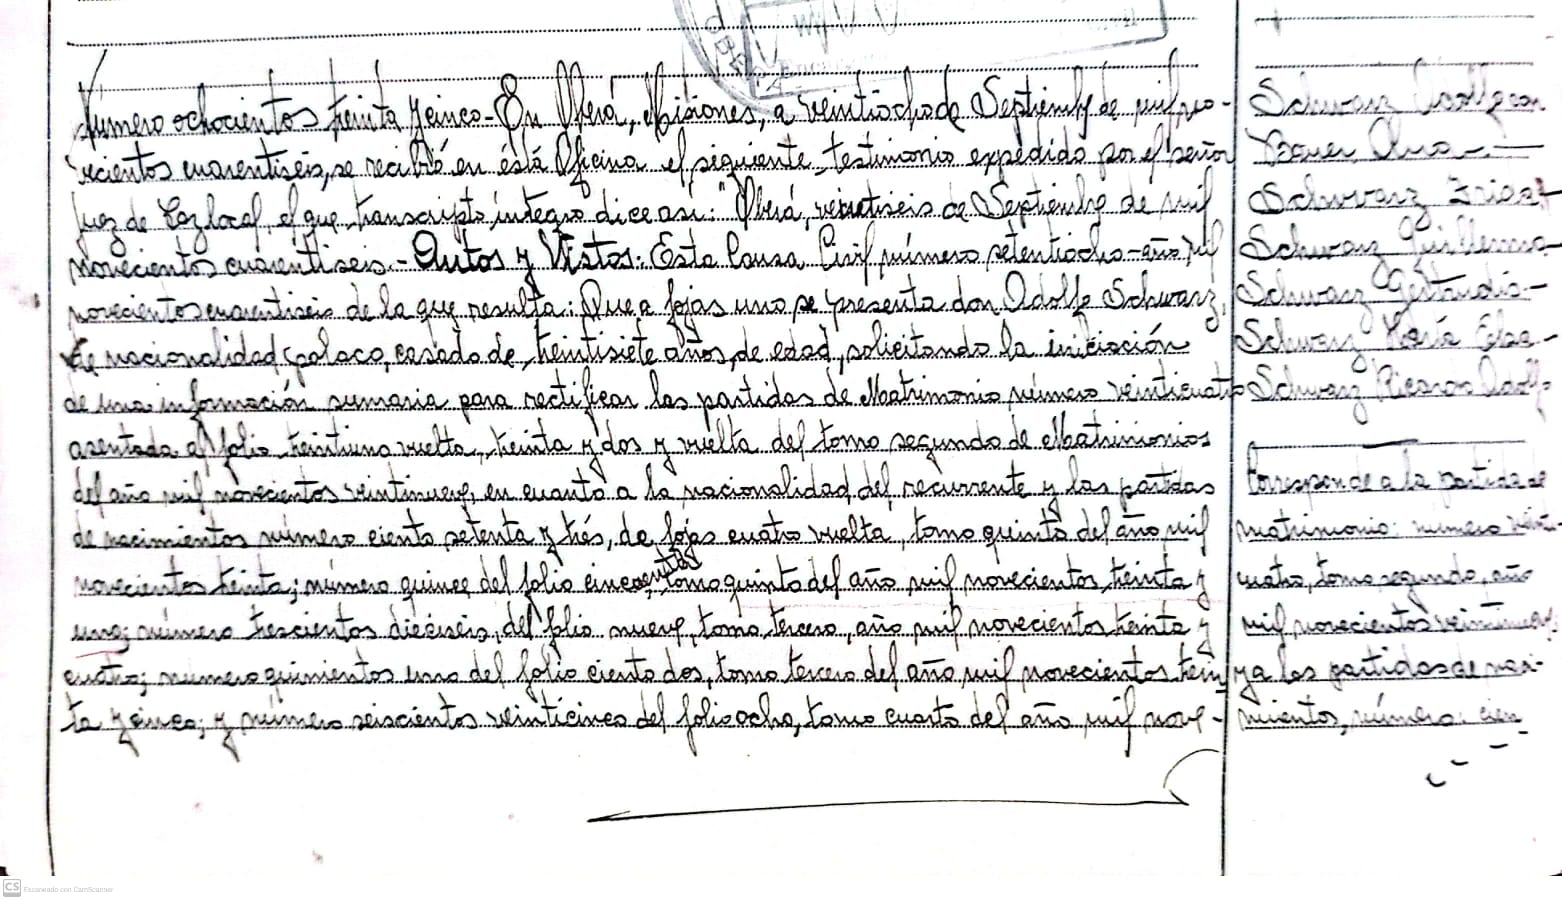 Número ochocientos treinta y cinco - En Oberá, Misiones, a veintiocho de Septiembre de mil no-
vecientos cuarentiseis, se recibió en ésta Oficina el siguiente testimonio expedido por el señor
Juez de Paz local, el que transcripto íntegro dice asi: "Oberá, veintiseis de Septiembre de mil
novecientos cuarentiseis.- Autos y Vistos: Esta Causa Civil número setentiocho-año mil
novecientos cuarentiseis de la que resulta: Que a fojas uno se presenta don Adolfo Schwarz,
de nacionalidad polaco, casado de treintisiete años de edad, solicitando la iniciación
de una información sumaria para rectificar las partidas de Matrimonio número veinticuatro
asentada al folio treintiuno vuelta, treinta y dos y vuelta del tomo segundo de Matrimonios
del año mil novecientos veintinueve, en cuanto a la nacionalidad del recurrente y las partidas
de nacimientos número ciento setenta y trés, de fojas cuatro vuelta, tomo quinto del año mil
novecientos treinta; número quince del folio cincuenta, tomo quinto del año mil novecientos treinta y
uno; número trescientos dieciseis, del folio nueve, tomo tercero, año mil novecientos treinta y
cuatro; número quinientos uno del folio ciento dos, tomo tercero del año mil novecientos trein
ta y cinco; y número seiscientos veinticinco del folio ocho, tomo cuarto del año mil nove-
Schwarz Adolfo con
Ana
Schwarz
Schwarz Guillermo
Schwarz Gertrudis-
Schwarz María Elsa-
Schwarz Ricardo Adolfo
Corresponde a la partida de
matrimonio: número veinti-
cuatro, tomo segundo, año
mil novecientos veintinueve,
y a las partidas de naci-
mientos, número: cien
CS Escaneado con CamScanner